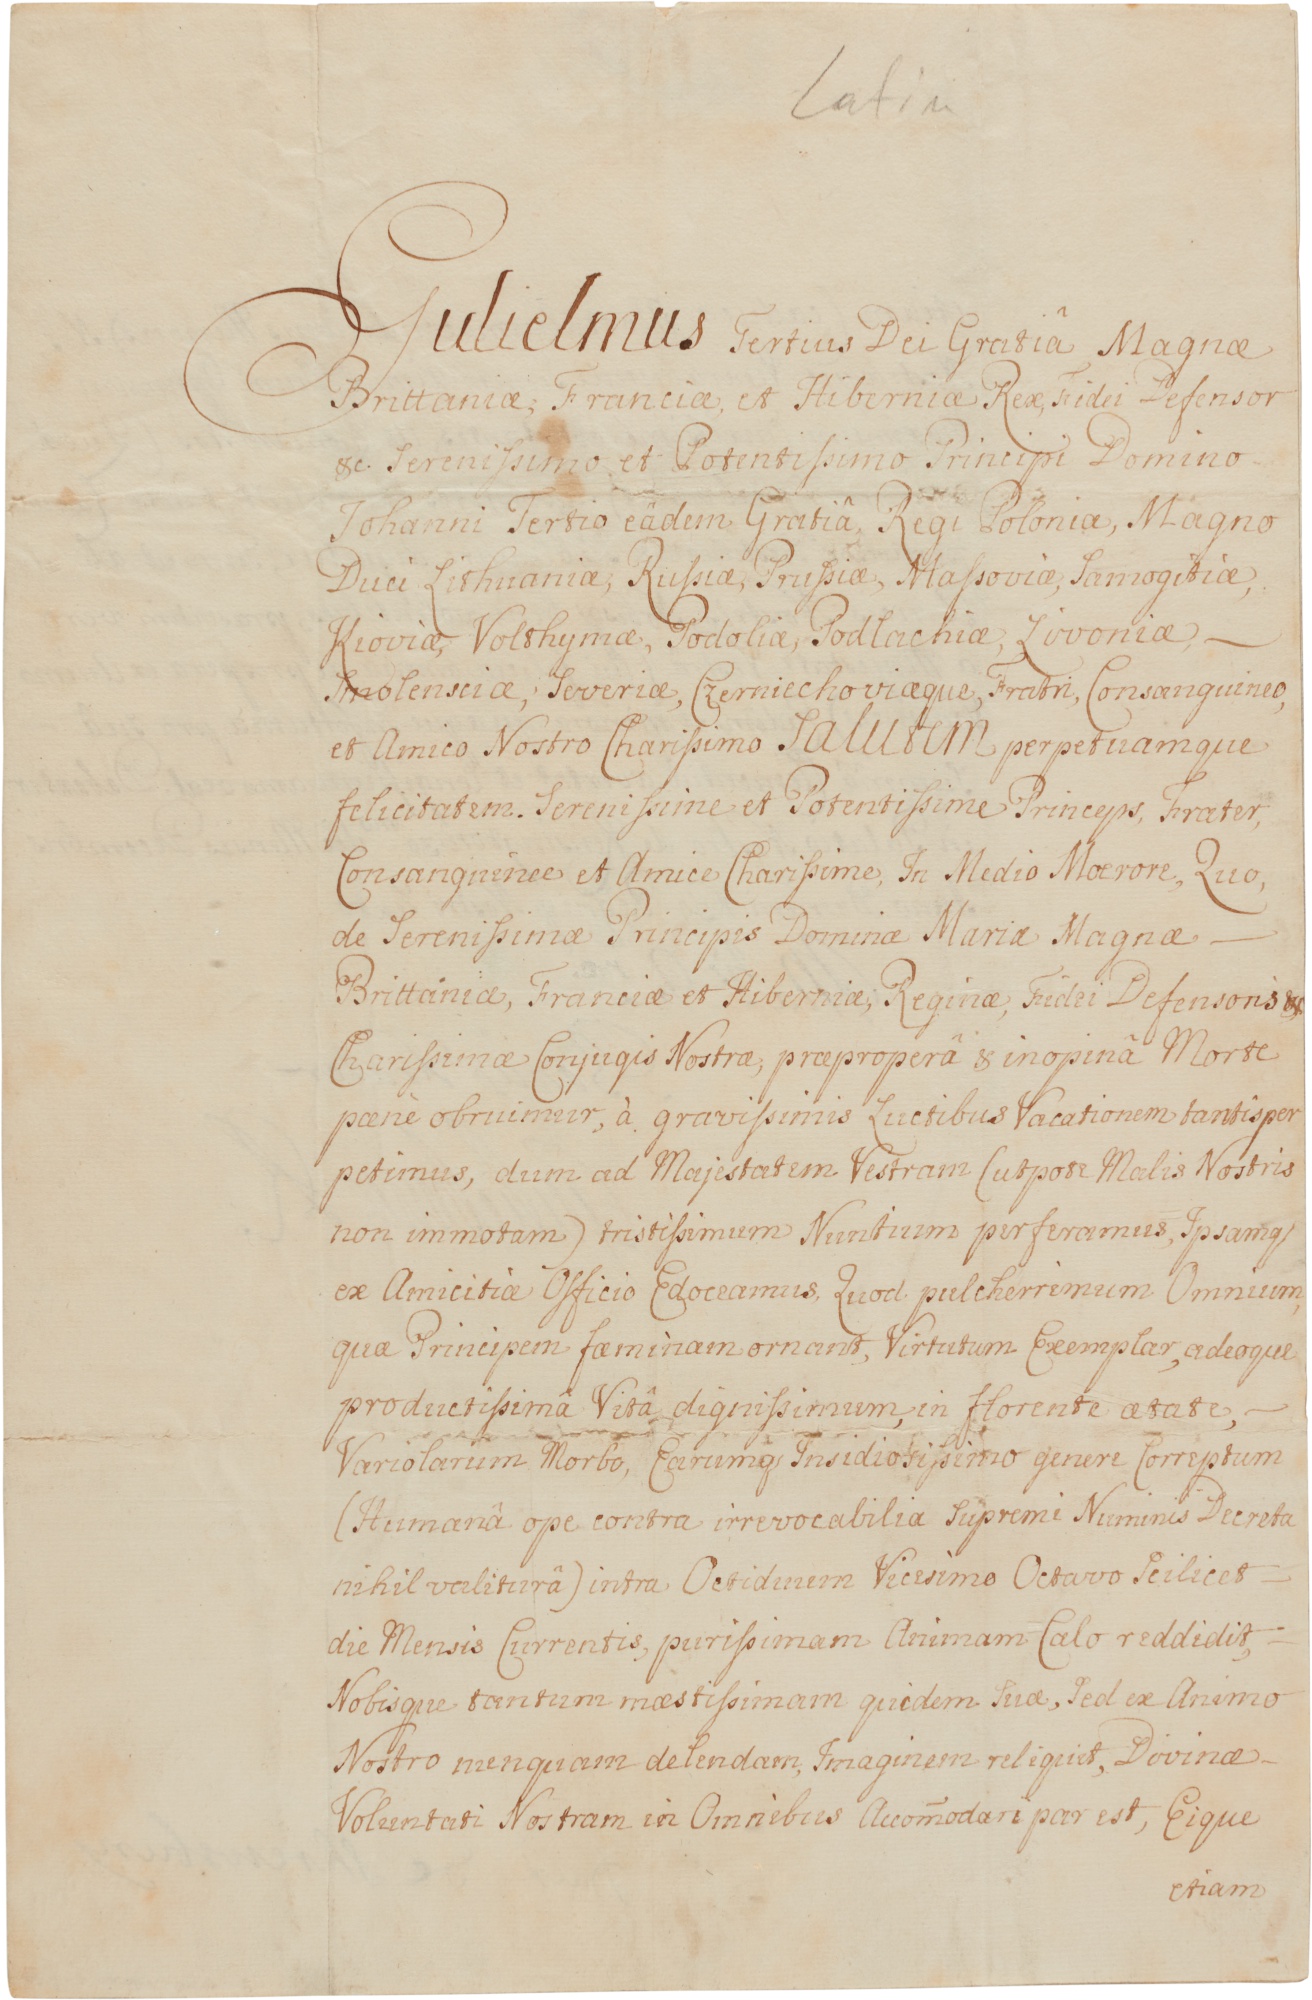 Latin
Gulielmus Tertius Dei Gratiâ Magnæ
Brittaniæ, Franciæ, et Hiberniæ Rex, Fidei Defensor
&c. Serenissimo et Potentissimo Principi Domino
Johanni Tertio eâdem Gratiâ, Regi Poloniæ, Magno
Duci Lithuaniæ, Russiæ, Prussiæ, Massoviæ, Samogitiæ,
Kioviæ, Volthymæ, Podoliæ, Podlachiæ, Livoniæ, —
Smolensciæ, Severiæ, Czerniechoviæque, Fratri, Consanguineo,
et Amico Nostro Charissimo Salutem perpetuamque
felicitatem. Serenissime et Potentissime Princeps, Frater,
Consanguinee et Amice Charissime, In Medio Mœrore, Quo,
de Serenissimæ Principis Dominæ Mariæ Magnæ —
Brittaniæ, Franciæ et Hiberniæ, Reginæ, Fidei Defensoris &c
Charissimæ Conjugis Nostræ, præproperâ & inopinâ Morte
pœnè obruimur, à gravissimis Luctibus Vacationem tantisper
petimus, dum ad Majestatem Vestram (utpote Malis Nostris
non immotam) tristissimum Nuntium perferamus, Ipsamq;
ex Amicitiæ Officio Edoceamus, Quod pulcherrimum Omnium,
quæ Principem fæminam ornant, Virtutum Exemplar, adeoque
productissimâ Vitâ dignissimum, in florente ætate, —
Variolarum Morbo, Earumq; Insidiosissimo genere Correptum
(Humanâ ope contra irrevocabilia Supremi Numinis Decreta
nihil valiturâ) intra Octiduum Vicesimo Octavo Scilicet =
die Mensis Currentis, purissimam Animam Cælo reddidit, =
Nobisque tantum mæstissimam quidem Suæ, Sed ex Animo
Nostro nunquam delendam, Imaginem reliquit, Divinæ -
Voluntati Nostram in Omnibus Accom̄odari par est, Eique
etiam